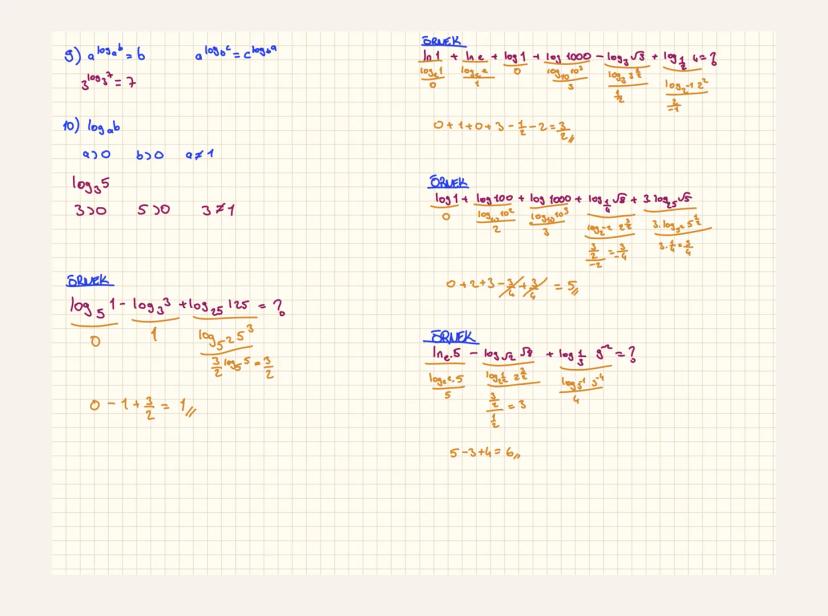 9) a^(log_a b) = b    a^(log_b c) = c^(log_b a)
3^(log_3 7) = 7
10) log_a b
a>0    b>0    a≠1
log_3 5
3>0    5>0    3≠1
ÖRNEK
log_5 1 - log_3 3 + log_25 125 = ?
0    1    log_5^2 5^3
3/2 log_5 5 = 3/2
0 - 1 + 3/2 = 1//
ÖRNEK
ln 1 + ln e + log 1 + log 1000 - log_3 √3 + log_(1/2) 4 = ?
log_e 1    log_e e    0    log_10 10^3    log_3 3^(1/2)    log_2^-1 2^2
0    1    3    1/2    2/-1
0+1+0+3-1/2-2 = 3/2//
ÖRNEK
log 1 + log 100 + log 1000 + log_(1/4) √8 + 3.log_25 √5
0    log_10 10^2    log_10 10^3    log_2^-2 2^(3/2)    3.log_5^2 5^(1/2)
2    3    (3/2)/-2 = 3/-4    3.1/4 = 3/4
0+2+3-3/4+3/4 = 5//
ÖRNEK
ln e.5 - log_√2 √8 + log_(1/3) 9^-2 = ?
log_e e.5    log_2^(1/2) 2^(3/2)    log_3^-1 3^-4
5    (3/2)/(1/2) = 3    4
5-3+4 = 6//